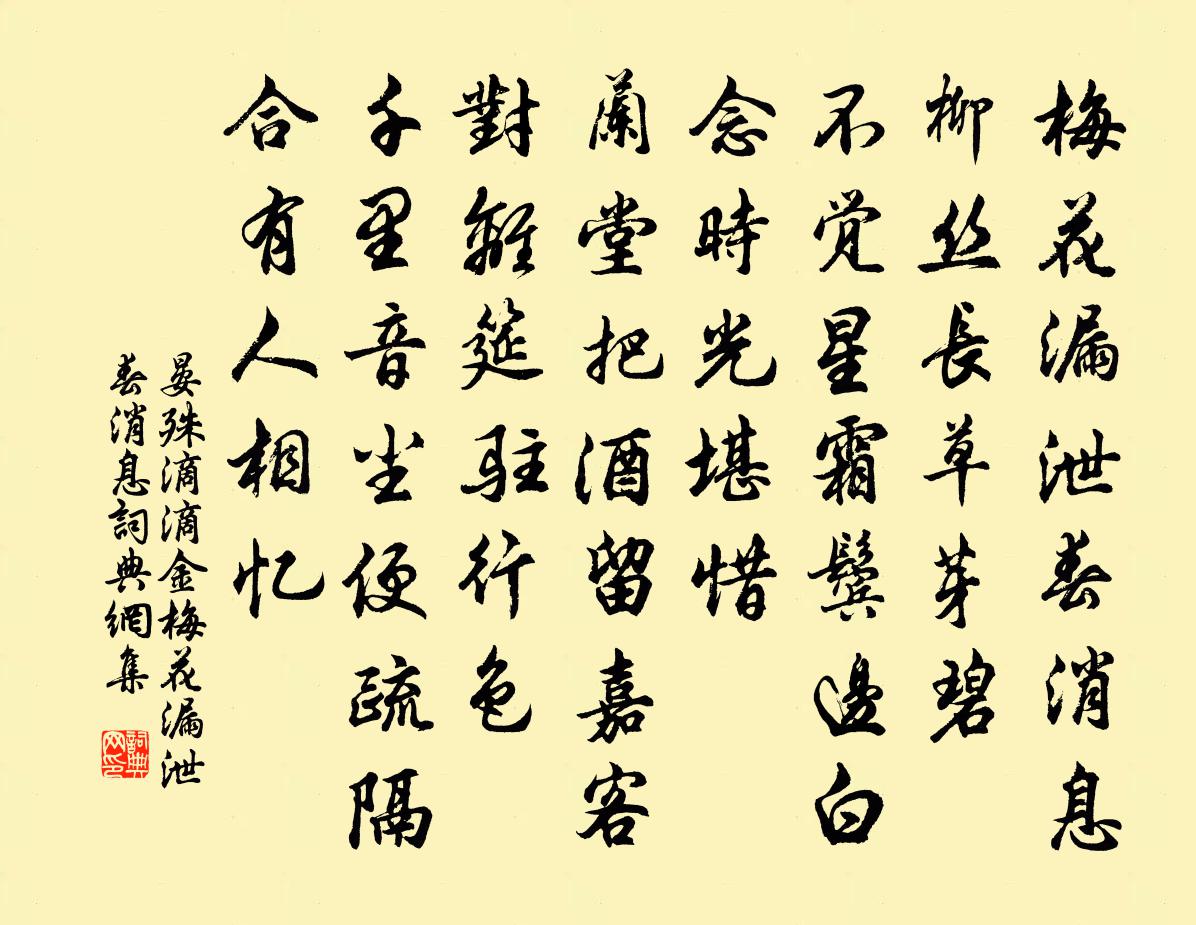 梅花漏泄春消息
柳丝長草芽碧
不覚星霜鬢邊白
念時光堪惜
蘭堂把酒留嘉客
對離筵駐行色
千里音尘便疏隔
合有人相忆
晏殊滴滴金梅花漏泄
春消息詞典網集
詞典
网印